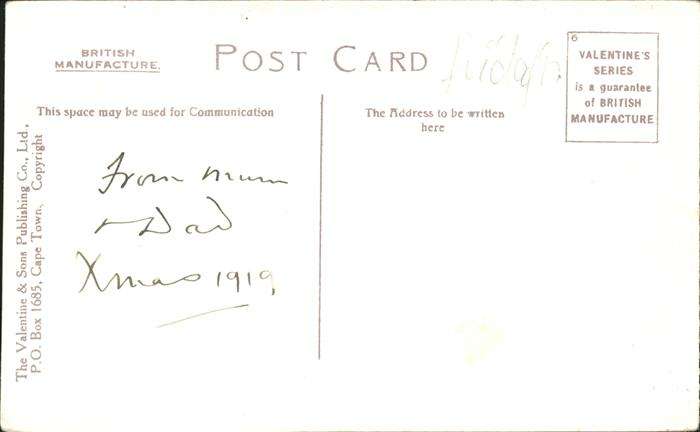 BRITISH
MANUFACTURE.
POST CARD
6
VALENTINE'S
SERIES
is a guarantee
of BRITISH
MANUFACTURE
This space may be used for Communication
The Address to be written
here
From Mum
+ Dad
Xmas 1919
The Valentine & Sons Publishing Co., Ltd.,
P.O. Box 1685, Cape Town, Copyright